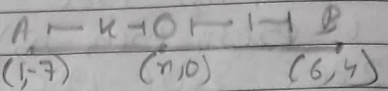 A ⊢ K ⊣ O ⊢ 1 ⊣ B
(1,-7) (n,0) (6,4)